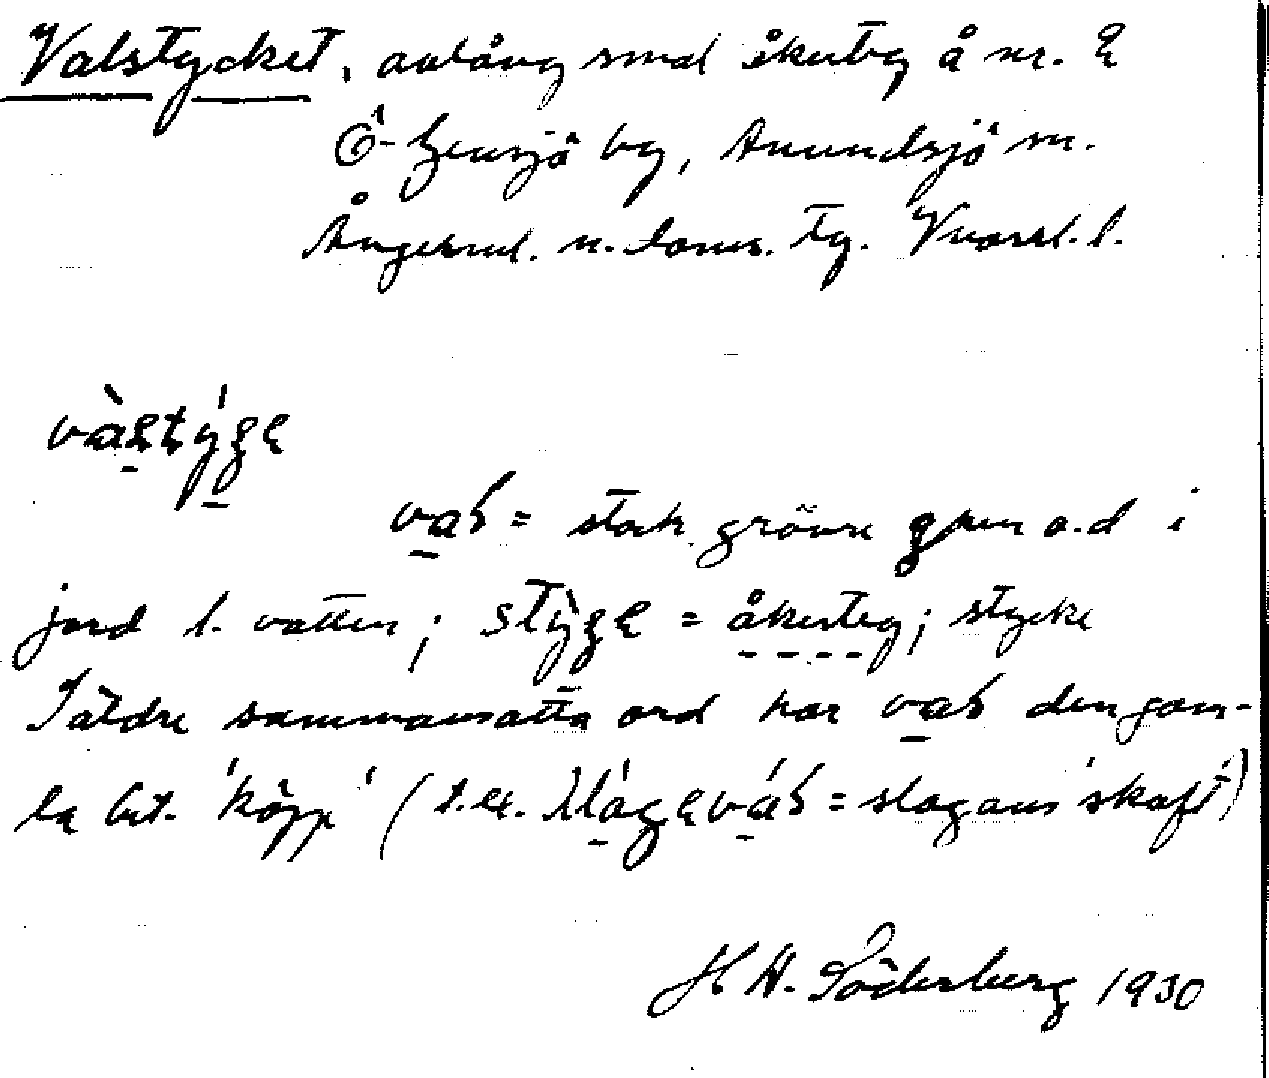 Valstycket, avlång smal åkerteg å nr. 2
Ö-Gensjö by, Anundsjö sn.
Ångerml. n. doms. tg. Vnorrl. l.
vàɐștýge
val = stock grövre gren o.d i
jord l. vatten; stỳge = åkerteg; stycke
I äldre sammansatta ord har val den gam-
la bet. 'käpp' ( t.ex. = slagans skaft)
H A. Söderberg 1930